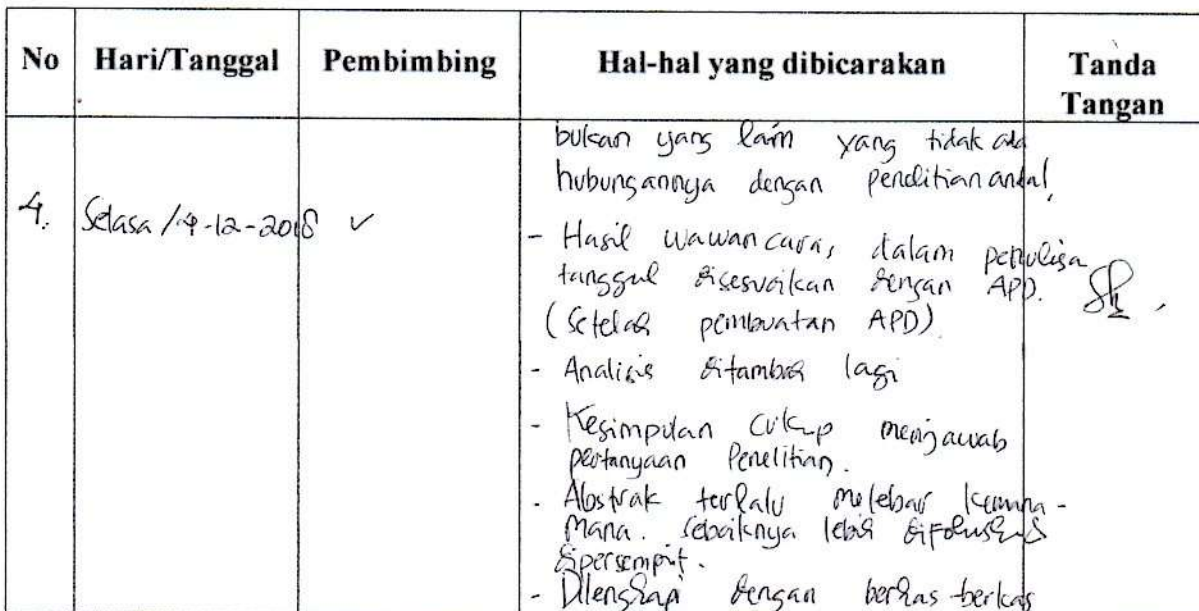 No Hari/Tanggal Pembimbing Hal-hal yang dibicarakan Tanda Tangan
bukan yang lain yang tidak ada
hubungannya dengan penelitian anda!
4. Selasa / 4-12-2018 ✓
- Hasil wawancara, dalam penulisan
tanggal disesuaikan dengan APD.
(Setelah pembuatan APD)
- Analisis ditambah lagi
- Kesimpulan cukup menjawab
pertanyaan Penelitian.
- Abstrak terlalu melebar kemana-
mana. sebaiknya lebih difokuskan
dipersempit.
- Dilengkapi dengan berkas-berkas